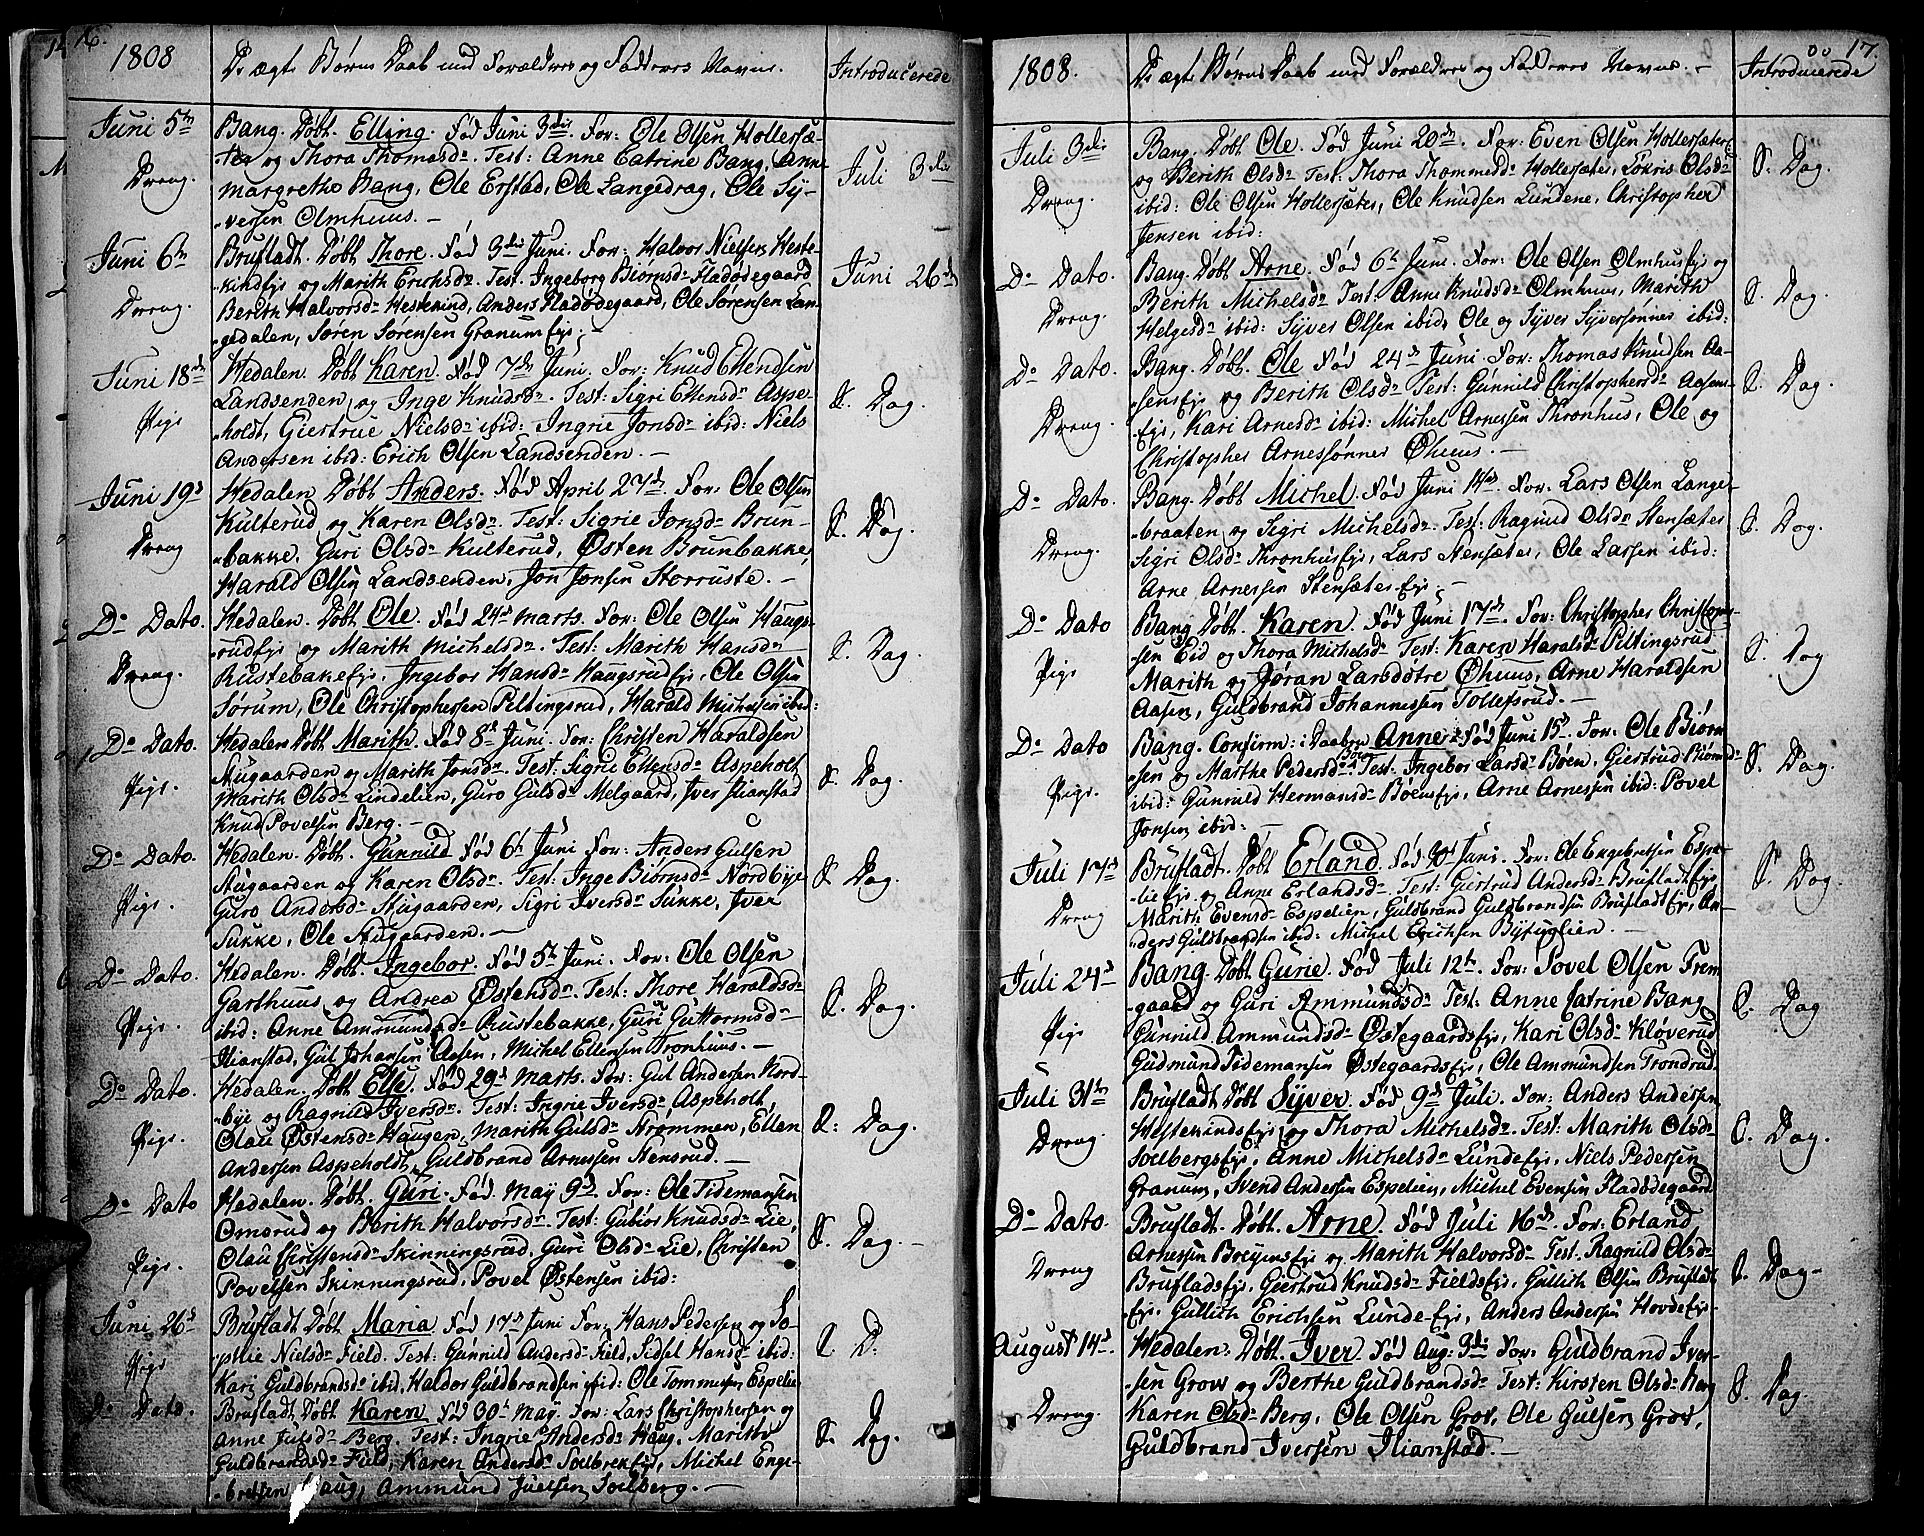 16.
1808
De ægte Børns Daab med Forældres og Fadderes Navne.
Introducerede
Juni 5te
Dreng.
Bang. Døbt. Elling. Fød Juni 3die. For: Ole Olsen Hollersæ-
-ter og Thora Thomasdr. Test: Anne Catrine Bang, Anne
Margrethe Bang, Ole Erstad, Ole Langedrag, Ole Sy-
-versen Olmhuus. -
Juli 3die
Juni 6te
Dreng.
Brufladt. Døbt Thore. Fød 3die Juni. For: Halvor Nielsen Heste-
kindejs og Marith Erichsdr. Test: Ingeborg Biørnsdr Fladødegaard
Berith Halvorsdr Hestekind, Anders Fladødegaard, Ole Sørensen Lan-
gedalen, Søren Sørensen Granumejs;
Juni 26de
Juni 18de
Pige
Hedalen. Døbt Karen. Fød 7de Juni. For: Knud Ellendsen
Landsenden og Inge Knudsdr. Test: Sigri Ellensdr Aspe-
-holdt, Giertrue Nielsdr ibid: Ingrie Jonsdr ibid: Niels
Andersen ibid: Erich Olsen Landsenden. -
S. Dag.
Juni 19d
Dreng
Hedalen. Døbt Anders. Fød April 27de. For: Ole Olsen
Kulterud og Karen Olsdr. Test: Sigrie Jonsdr Brun-
-bakke, Guri Olsdr Kulterud, Østen Brunbakke,
Harald Olsen Landsenden, Jon Jonsen Storruste. -
S. Dag.
Do Dato.
Dreng.
Hedalen. Døbt Ole. Fød 24de Marts. For: Ole Olsen Haugs-
-rudejs og Marith Michelsdr. Test: Marith Hansdr
Rustebakejs, Ingebor Hansdr Haugsrudejs, Ole Olsen
Sørum, Ole Christophersen Peltingsrud, Harald Michelsen ibid:
S. Dag.
Do Dato.
Pige.
Hedalen Døbt Marith. Fød 8de Juni. For: Christen Haraldsen
Stugaarden og Marith Jonsdr. Test: Sigrie Ellensdr Aspeholt
Marith Olsdr Lindelien, Guro Gulsdr Melgaard, Iver Ilianstad
Knud Povelsen Berg. -
S. Dag.
Do Dato.
Pige.
Hedalen. Døbt. Gunnild Fød 6te Juni For: Anders Gulsen
Stugaarden og Karen Olsdr. Test: Inge Biørnsdr Nordbye
Guro Andersdr Stugaarden, Sigri Iversdr Sukke, Iver
Sukke, Ole Stugaarden. -
S. Dag.
Do Dato.
Pige.
Hedalen. Døbt. Ingebor. Fød 5te Juni. For: Ole Olsen
Garthuus og Andrea Østensdr. Test: Thore Haraldsdr
ibid: Anne Ammundsdr Rustebakke, Guri Guttormsdr
Ilianstad, Gul Johansen Aasen, Michel Ellensen Tronhuus. -
S. Dag.
Do Dato.
Pige.
Hedalen. Døbt Else. Fød 29de Marts. For: Gul Andersen Nord-
-bye og Ragnild Iversdr. Test: Ingrie Iversdr Aspeholt,
Olau Østensdr Haugen, Marith Gulsdr Strømmen, Ellen
Andersen Aspeholdt, Guldbrand Arnesen Stensrud. -
S: Dag.
Do Dato
Pige.
Hedalen. Døbt. Guri. Fød. May 9de For: Ole Tidemansen
Omsrud og Berith Halvorsdr. Test: Gubiør Knudsdr Lie,
Olau Christensdr Skinningsrud, Guri Olsdr Lie, Christen
Povelsen Skinningsrud, Povel Østensen ibid:
S. Dag. -
Juni 26d
Pige
Brufladt Døbt Maria. Fød 17de Juni For: Hans Pedersen og So-
-phie Nielsdr Field. Test: Gunnild Andersdr Field, Sidsel Hansdr ibid:
Kari Guldbrandsdr ibid, Haldor Guldbrandsen ibid: Ole Tommesen Espelie
S. D:
Do Dato.
Brufladt Døbt Karen Fød 30te May. For: Lars Christophersen og
Anne Julsdr Berg. Test: Ingrie Andersdr Haug, Marithe
Guldbrandsdr Field, Karen Andersdr Soelbrekejs, Michel Enge-
-bretsen Haug, Ammund Juelsen Soelberg. -
S. Dag.
17.
1808.
De ægte Børns Daab med Forældres og Fadderes Navne. -
Introducerede
Juli 3die
Dreng.
Bang. Døbt Ole. Fød Juni 20de. For: Even Olsen Hollersæter
og Berith Olsdr Test: Thora Thommesdr Hollersæter, Lokris Olsdr
ibid: Ole Olsen Hollersæter, Ole Knudsen Lundene, Christopher
Jensen ibid:
S. Dag.
Do Dato.
Dreng.
Bang. Døbt Arne. Fød 6te Juni. For: Ole Olsen Olmhusejs og
Berith Michelsdr Test: Anne Knudsdr Olmhuus, Marith
Helgesdr ibid: Syver Olsen ibid, Ole og Syver Syversønner ibid:
S. Dag.
Do Dato.
Dreng.
Bang. Døbt. Ole Fød 24de Juni. For: Thomas Knudsen Aa-
-sensejs og Berith Olsdr Test: Gunnild Christophersdr Aasens-
-ejs, Kari Arnesdr ibid: Michel Arnesen Thronhus, Ole og
Christopher Arnessønner Øhuus. -
S. Dag.
Do Dato.
Dreng.
Bang. Døbt Michel Fød Juni 14de For: Lars Olsen Lange-
braaten og Sigri Michelsdr Test: Ragnild Olsdr Stensæter
Sigri Olsdr Thronhusejs, Lars Stensæter, Ole Larsen ibid:
Arne Arnessen Stensæterejs; -
S. Dag.
Do Dato
Pige
Bang Døbt. Karen. Fød Juni 17de. For: Christopher Christophers-
-sen Eid og Thora Michelsdr Test: Karen Haralsdr Peltingsrud
Marith og Jøran Larsdøtre Øhuus, Arne Haraldsen
Aasen, Guldbrand Johannessen Tollefsrud. -
S. Dag
Do Dato
Pige.
Bang. Confirm: i Daaben Anne Fød Juni 15de For: Ole Biørn
-sen og Marthe Pedersdr Test: Ingebor Larsdr Bøen, Giertrud Biørnsdr
ibid: Gunnild Hermansdr Bøensejs, Arne Arnessen ibid: Povel
Jonsen ibid: -
S. Dag.
Juli 17de
Dreng
Brufladt. Døbt Erland. Fød 20de Juni. For: Ole Engebretsen Espe-
-liejs og Anne Erlandsdr Test: Giertrud Andersdr Brufladtejs
Marith Evensdr Espelien, Guldbrand Guldbrandsen Brufladtejs, An-
-ders Guldbrandsen ibid: Michel Erichsen Bytuglien. -
S. Dag.
Juli 24d
Pige
Bang. Døbt Gurie. Fød Juli 12te. For: Povel Olsen Frem
-gaard og Guri Ammundsdr Test: Anne Catrine Bang
Gunnild Ammundsdr Østegaardsejs, Kari Olsdr Kløverud
Gudmund Tidemansen Østegaardsejs, Ole Ammundsen Trondrud.
S. Dag
Juli 31te
Dreng
Brufladt. Døbt Syver. Fød 9de Juli. For: Anders Andersen
Hestekindsejs og Thora Michelsdr Test: Marith Olsdr
Soelbergsejs, Anne Michelsdr Lundeejs, Niels Pedersen
Granum, Svend Andersen Espelien, Michel Evensen Fladødegaard
S. Dag.
Do Dato.
Dreng
Brufladt. Døbt. Arne. Fød Juli 16de. For: Erland
Arnesen Breyensejs og Marith Halvorsdr Test. Ragnild Olsdr
Brufladsejs, Giertrud Knudsdr Fieldsejs, Gullich Olsen Brufladt
ejs: Gullich Erichsen Lunde-ejs, Anders Andersen Hovdeejs.
S. Dag-
August 14d
Dreng.
Hedalen. Døbt. Iver. Fød Aug: 3die For: Guldbrand Iver-
-sen Grov og Berthe Guldbrandsdr Test: Kirsten Olsdr Berg
Karen Olsdr Berg, Ole Olsen Grov, Ole Gulsen Grov,
Guldbrand Iversen Ilianstad. -
S. Dag.